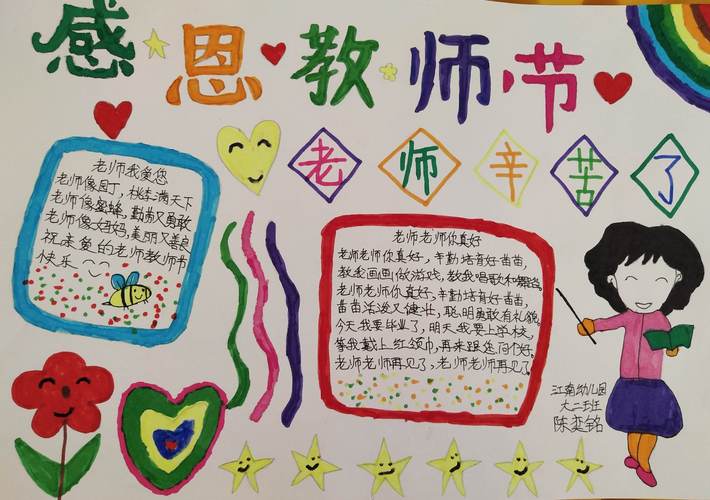 感恩教师节
老师辛苦了
老师我爱您
老师像园丁，桃李满天下
老师像蜜蜂，勤劳又勇敢
老师像妈妈，美丽又善良
祝亲爱的老师教师节
快乐
老师老师你真好
老师老师你真好，辛勤培育好苗苗，
教我画画做游戏，教我唱歌和舞蹈。
老师老师你真好，辛勤培育好苗苗，
苗苗活泼又健壮，聪明勇敢有礼貌。
今天我要毕业了，明天我要上学校，
等我戴上红领巾，再来跟您问个好。
老师老师再见了，老师老师再见了
幼儿园
大二班
陈奕铭